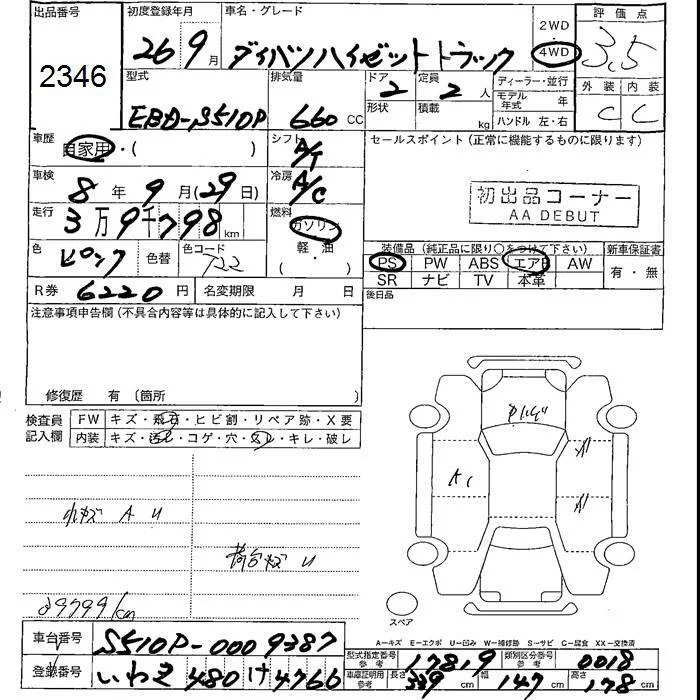 出品番号 初度登録年月 車名・グレード 2WD ・ 4WD 評価点
2346 26 9月 ダイハツハイゼットトラック 3.5
型式 排気量 ドア 定員 ディーラー・並行 外装 内装
EBD-S510P 660 CC 2 2人 モデル年式 年 C C
形状 積載 kg ハンドル 左・右
車歴 自家用・( ) シフト A/T セールスポイント(正常に機能するものに限ります)
車検 8年9月(29日) 冷房 A/C 初出品コーナー
AA DEBUT
走行 3万9千798km 燃料 ガソリン
軽・油
( ・ )
色 ピンク 色替 色コード T22
装備品(純正品に限り○をつけて下さい) 新車保証書
PS PW ABS エアB AW 有・無
SR ナビ TV 本革
R券 6220円 名変期限 月 日 後日品
注意事項申告欄(不具合内容等は具体的に記入して下さい)
修復歴 有 〔箇所 〕
検査員記入欄 FW キズ・飛石・ヒビ割・リペア跡・X要
内装 キズ・汚レ・コゲ・穴・スレ・キレ・破レ
A U
荷台キズ U
39799km
スペア
A-キズ E-エクボ U-凹み W-補修跡 S-サビ C-腐食 XX-交換済
車台番号 S510P-0009387
登録番号 いわき 480 け 4766
型式指定番号 参考 17819 類別区分番号 参考 0018
車庫証明用 参考 長さ 339cm 幅 147cm 高さ 178cm